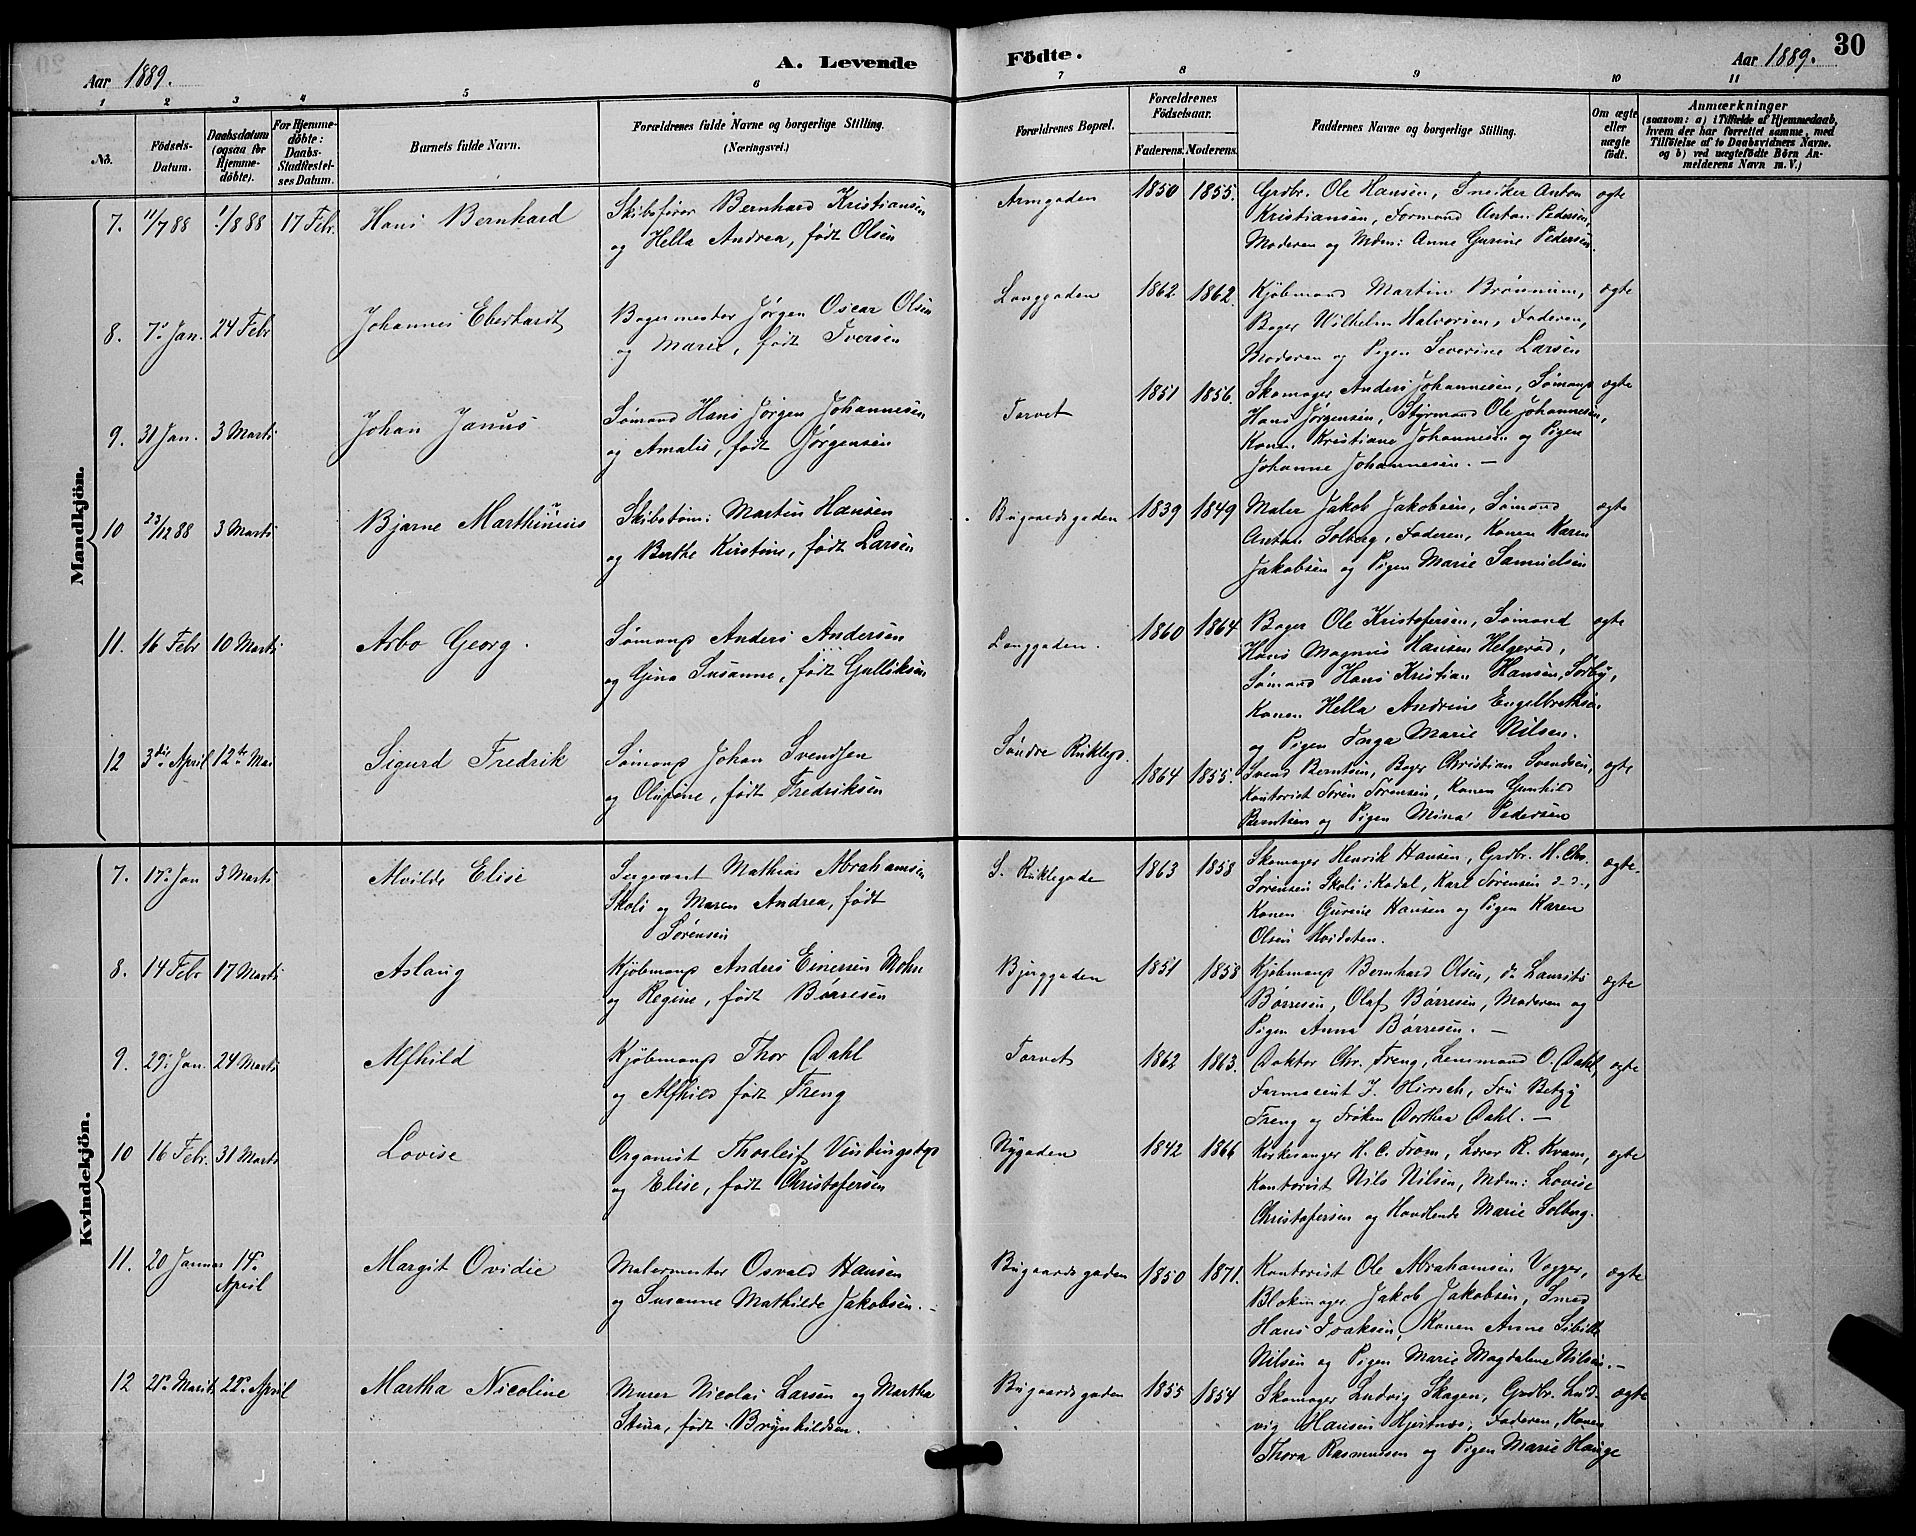 Aar 1889.
A. Levende
Födte.
Aar 1889.
30
1 2 3 4 5 6 7 8 9 10 11
No.
Födsels-
Datum.
Daabsdatum
(ogsaa for
Hjemme-
döbte).
For Hjemme-
döbte:
Daabs-
Stadfæstel-
ses Datum.
Barnets fulde Navn.
Forældrenes fulde Navne og borgerlige Stilling.
(Næringsvei.)
Forældrenes Bopæl.
Forældrenes
Födselsaar.
Faderens. Moderens.
Faddernes Navne og borgerlige Stilling.
Om ægte
eller
uægte
födt.
Anmærkninger
(saasom: a) i Tilfælde af Hjemmedaab,
hvem der har forrettet samme, med
Tilföielse af to Daabsvidners Navne.
og b) ved uægtefödte Börn An-
melderens Navn m. V.)
Mandkjön.
7. 11/7 88 1/8 88 17 Febr. Hans Bernhard
Skibsfører Bernhard Kristiansen
og Hella Andrea, født Olsen
Armgaden 1850 1855.
Grdbr. Ole Hansen, Snedker Anton
Kristiansen, Formand Anton Pedersen,
Moderen og Mdm: Anne Gurine Pedersen.
ægte
8. 7de Jan. 24 Febr Johannes Eberhardt
Bagermester Jørgen Oscar Olsen
og Marie, født Iversen
Langgaden 1862 1862.
Kjøbmand Martin Brønnum,
Bager Wilhelm Halvorsen, Faderen,
Moderen og Pigen Severine Larsen
ægte
9. 30 Jan. 3 Marts Johan Janus
Sømand Hans Jørgen Johannesen
og Amalie, født Jørgensen
Torvet 1851 1856.
Skomager Anders Johannesen, Sømand
Hans Jørgensen, Styrmand Ole Johannesen,
Konen Kristiane Johannesen og Pigen
Johanne Johannesen. —
ægte
10 23/12 88 3 Marts Bjarne Marthinius
Skibstøm: Martin Hansen
og Berthe Kirstine, født Larsen
Bugaardsgaden 1839 1849
Maler Jakob Jakobsen, Sømand
Anton Solberg, Faderen, Konen Karen
Jakobsen og Pigen Marie Samuelsen
ægte
11. 16 Febr 10 Marts Arbo Georg.
Sømand Anders Andersen
og Gina Susanne, født Gulliksen
Langgaden. 1860 1864
Bager Ole Kristofersen, Sømand
Hans Magnus Hansen Helgerød,
Sømand Hans Kristian Hansen Sørby,
Konen Hella Andrine Engelbrethsen
og Pigen Inga Marie Nilsen.
ægte
12 3die April 12te Mai Sigurd Fredrik
Sømand Johan Svendsen
og Olufine, født Fredriksen
Søndre Rukleg. 1864 1855.
Svend Berntsen, Bager Christian Svendsen,
Kontorist Søren Sørensen, Konen Gunhild
Berntsen og Pigen Mina Pedersen
ægte
Kvindekjön.
7. 17de Jan 3 Marts Alvilde Elise
Sergeant Mathias Abrahamsen
Skoli og Maren Andrea, født
Sørensen
S. Ruklegade 1863 1858
Skomager Henrik Hansen, Grdbr. H. Chr.
Sørensen Skoli i Kodal, Karl Sørensen d. d.,
Konen Gurine Hansen og Pigen Karen
Olsen Hvidsten.
ægte.
8. 14 Febr 17 Marts Aslaug
Kjøbmand Anders Einersen Mohn
og Regine, født Børresen
Bjerggaden 1851 1858
Kjøbmand Bernhard Olsen, do Laurits
Børresen, Olaf Børresen, Moderen og
Pigen Anna Børresen. —
ægte
9. 29de Jan. 24 Marts Alfhild
Kjøbmand Thor Dahl
og Alfhild født Freng
Torvet 1862 1863.
Doktor Chr. Freng, Lensmand O. Dahl,
Farmaceut J. Hirsch, Fru Betzy
Freng og Frøken Dorthea Dahl. —
ægte
10 16 Febr. 31 Marts Lovise
Organist Thorleif
og Elise, født Christofersen
Nygaden 1842 1866
Kirkesanger H. C. From, Lærer R. Kvam,
Kontorist Nils Nilsen, Mdm: Lovise
Christofersen og Handlende Marie Solberg.
ægte
11. 20 Januar 14de
April
Margit Ovidie
Malermester Osvald Hansen
og Susanne Mathilde Jakobsen. —
Bugaardsgaden 1850 1871.
Kontorist Ole Abrahamsen Vegger,
Blokmager Jakob Jakobsen, Smed
Hans Isaksen, Konen Anne Sibille
Nilsen og Pigen Marie Magdalene Nilsen. —
ægte
12 21de Marts 22de April Martha Nicoline
Murer Nicolai Larsen og Martha
Stina, født Brynhildsen.
Bugaardsgaden 1855 1854
Skomager Ludvig Skagen, Grdbr. Lud-
vig Hansen Hjertnæs, Faderen, Konen
Thora Rasmussen og Pigen Marie Hauge
ægte